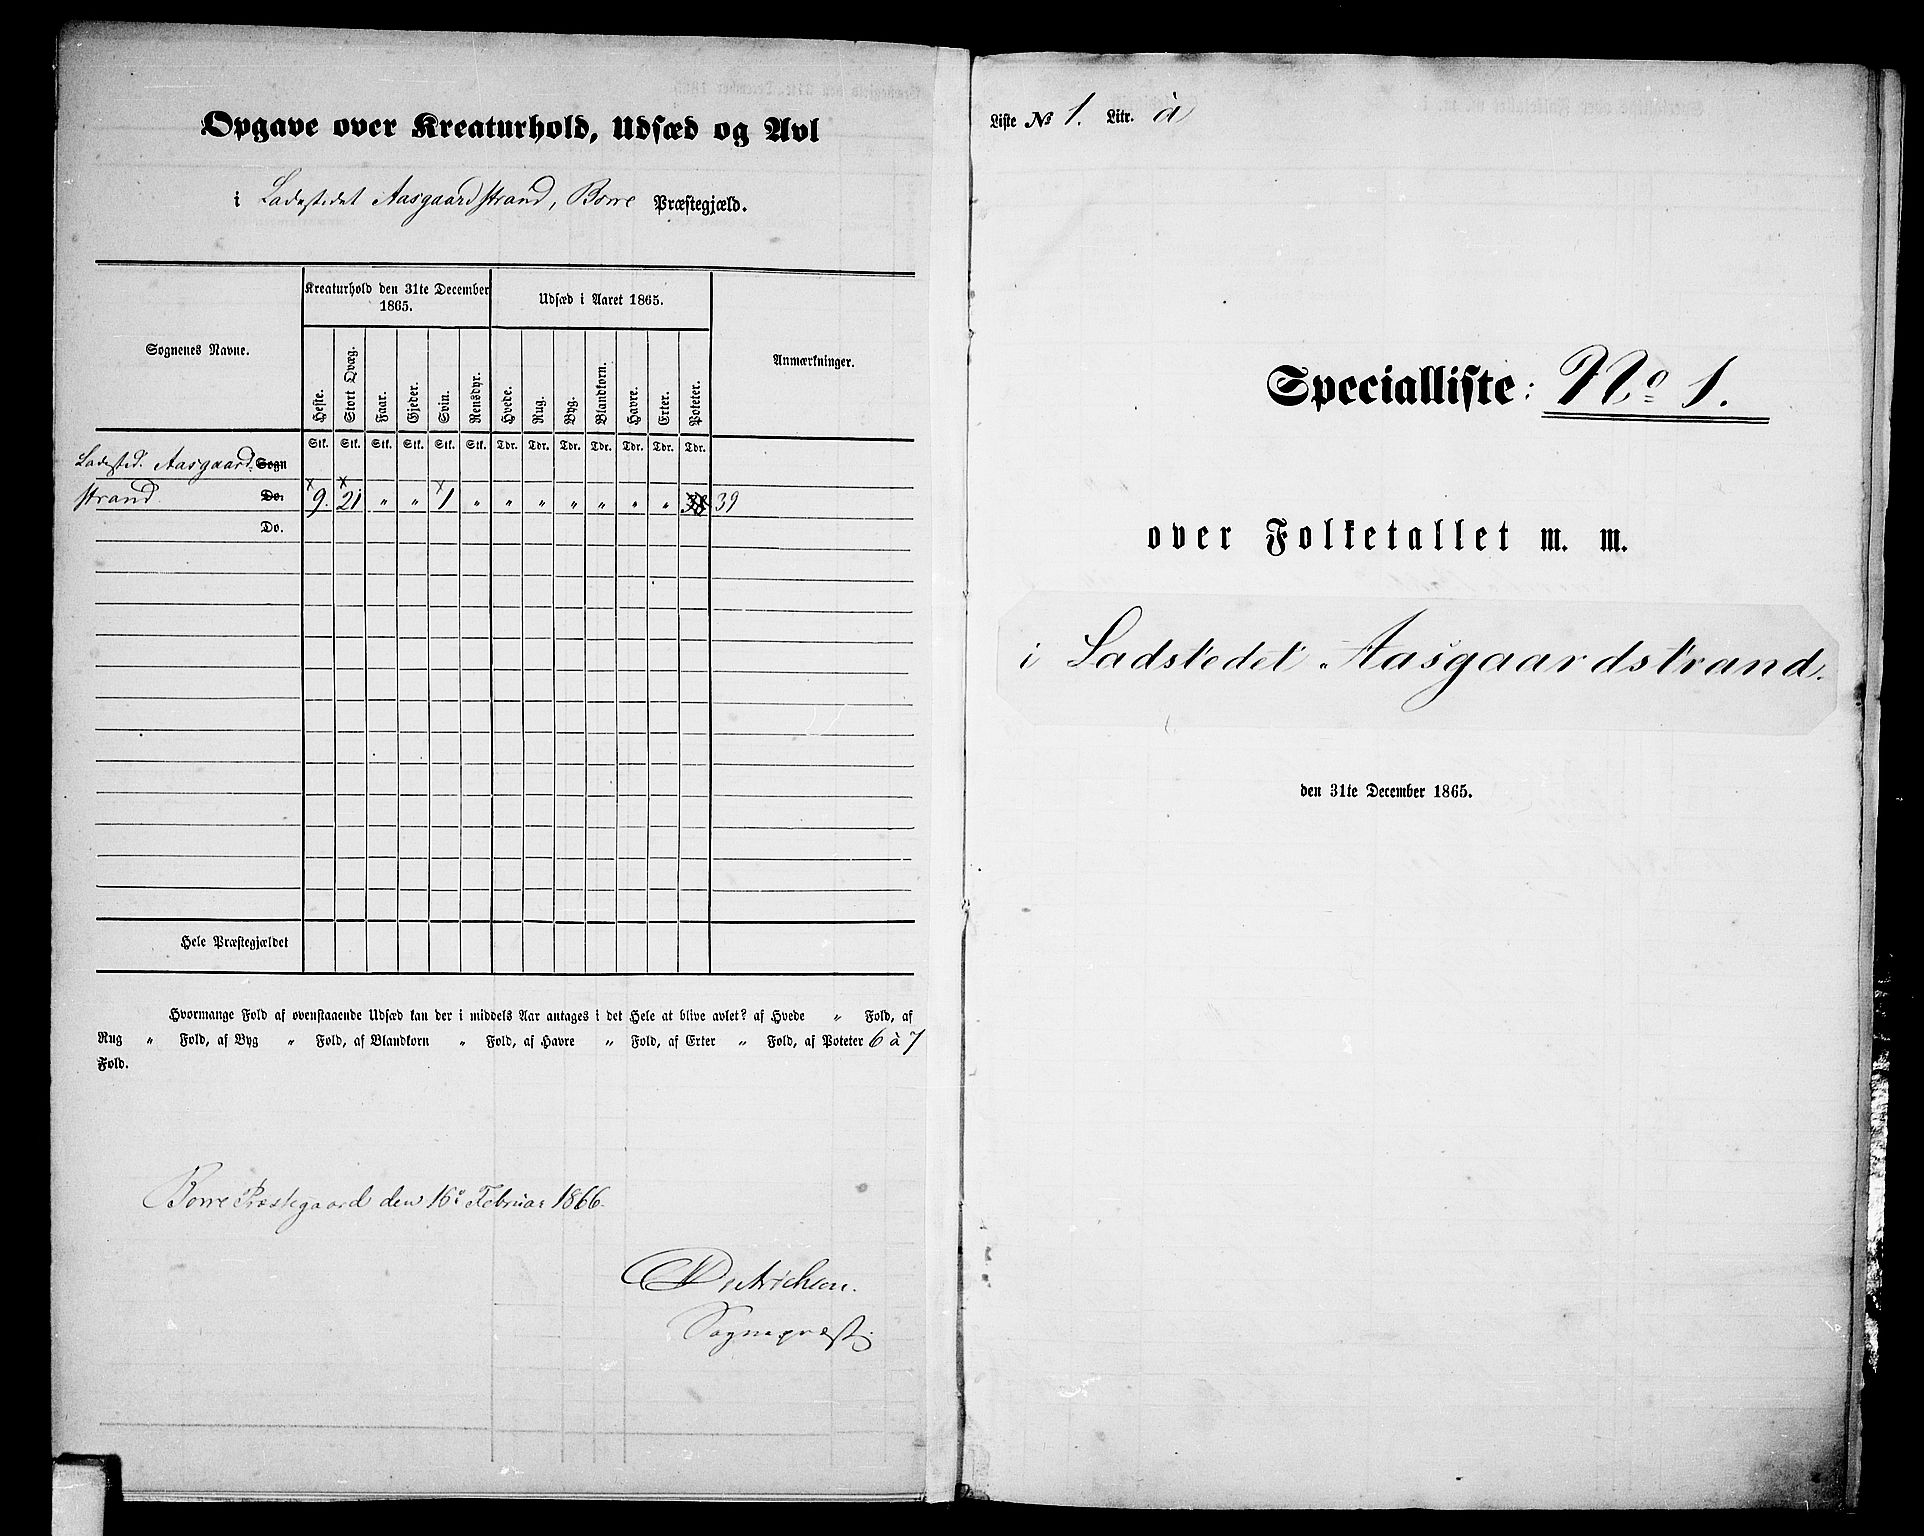 Opgave over Kreaturhold, Udsæd og Avl
i Ladestedet Aasgaardstrand, Borre Præstegjæld.
Sognenes Navne.
Kreaturhold den 31te December
1865.
Udsæd i Aaret 1865.
Anmærkninger.
Heste. Stort Qvæg. Faar. Gjeder. Svin. Rensdyr. Hvede. Rug. Byg. Blandkorn. Havre. Erter. Poteter.
Stk. Stk. Stk. Stk. Stk. Stk. Tdr. Tdr. Tdr. Tdr. Tdr. Tdr. Tdr.
Ladested. Aasgaard Sogn
strand. Do. 9. 21 " " 1 " " " " " " " 38 39
Do.
Hele Præstegjældet
Hvormange Fold af ovenstaaende Udsæd kan der i middels Aar antages i det Hele at blive avlet? af Hvede " Fold, af
Rug " Fold, af Byg " Fold, af Blandkorn " Fold, af Havre " Fold, af Erter " Fold, af Poteter 6 à 7
Fold.
Borre Præstegaard den 16de Februar 1866.
Dietrichson.
Sognepræst
Liste № 1. Litr. a
Specialliste: No 1.
over Folketallet m. m.
i Ladstedet Aasgaardstrand.
den 31te December 1865.